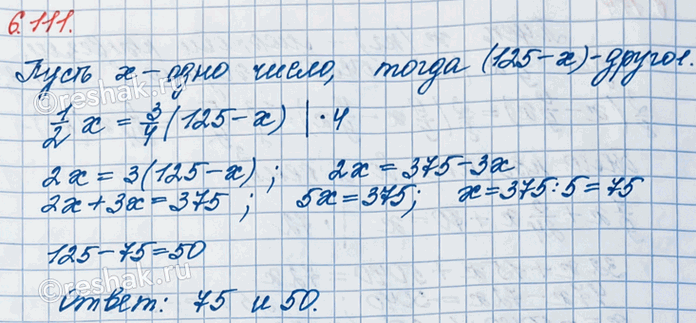 6.111.
Пусть x – одно число, тогда (125 – x) – другое.
1/2 x = 3/4 (125 – x) | · 4
2x = 3(125 – x) ; 2x = 375 – 3x
2x + 3x = 375 ; 5x = 375; x = 375 : 5 = 75
125 – 75 = 50
Ответ: 75 и 50.
reshak.ru
reshak.ru
reshak.ru